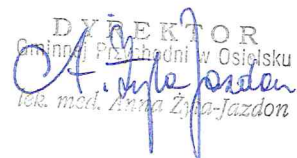 DYREKTOR
Gminnej Przychodni w Osielsku
A. Żyła-Jazdon
lek. med. Anna Żyła-Jazdon